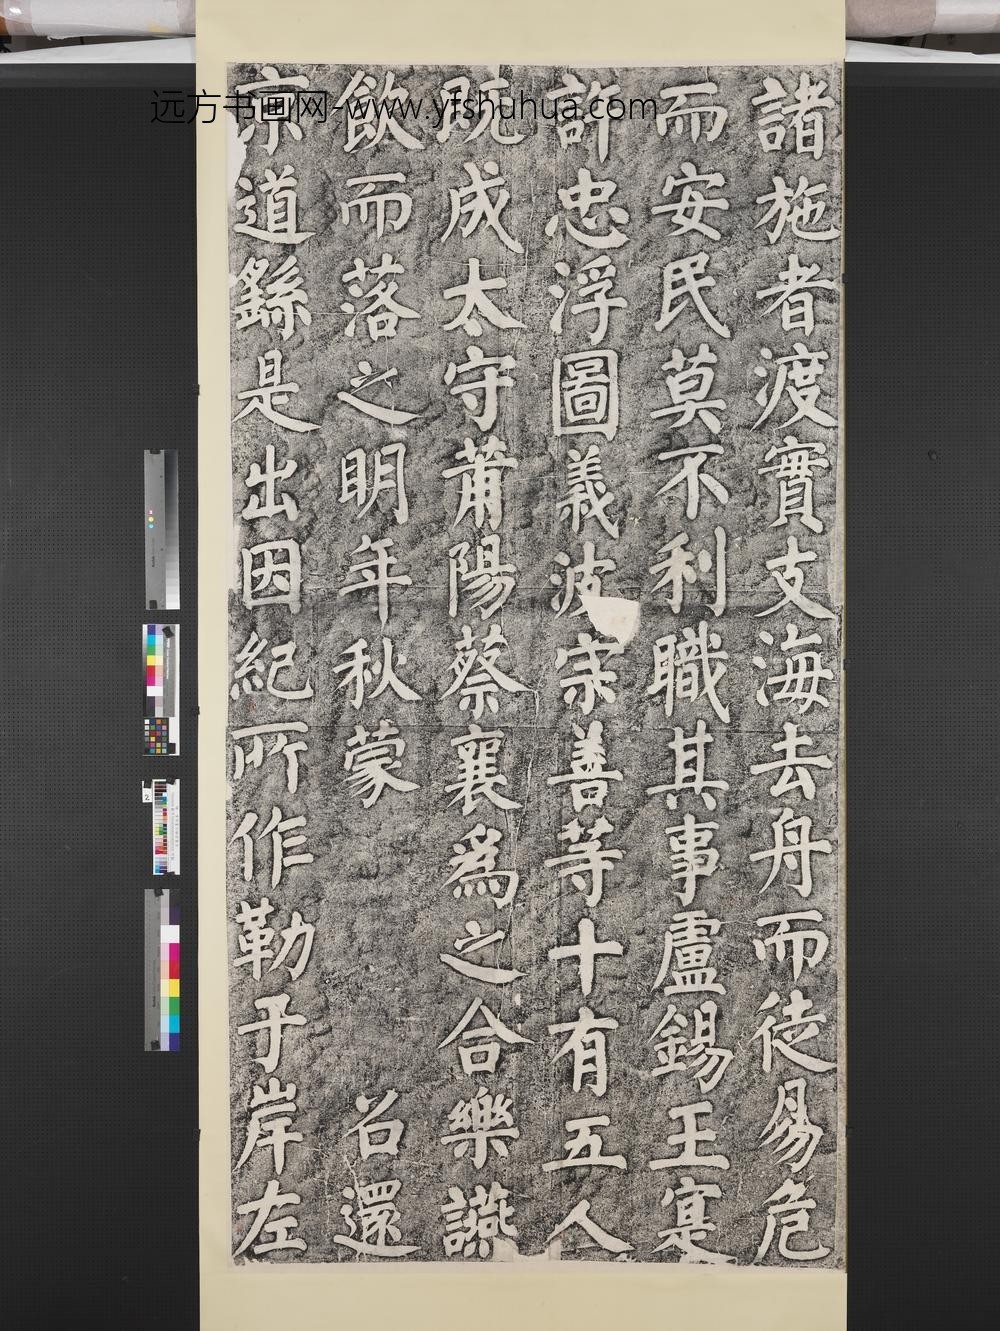 諸施者渡實支海去舟而徒易危
而安民莫不利職其事盧錫王寔
許忠浮圖義波宗善等十有五人
既成太守莆陽蔡襄為之合樂讌
飲而落之明年秋蒙召還
京道繇是出因紀所作勒于岸左
远方书画网-www.yfshuhua.com
2